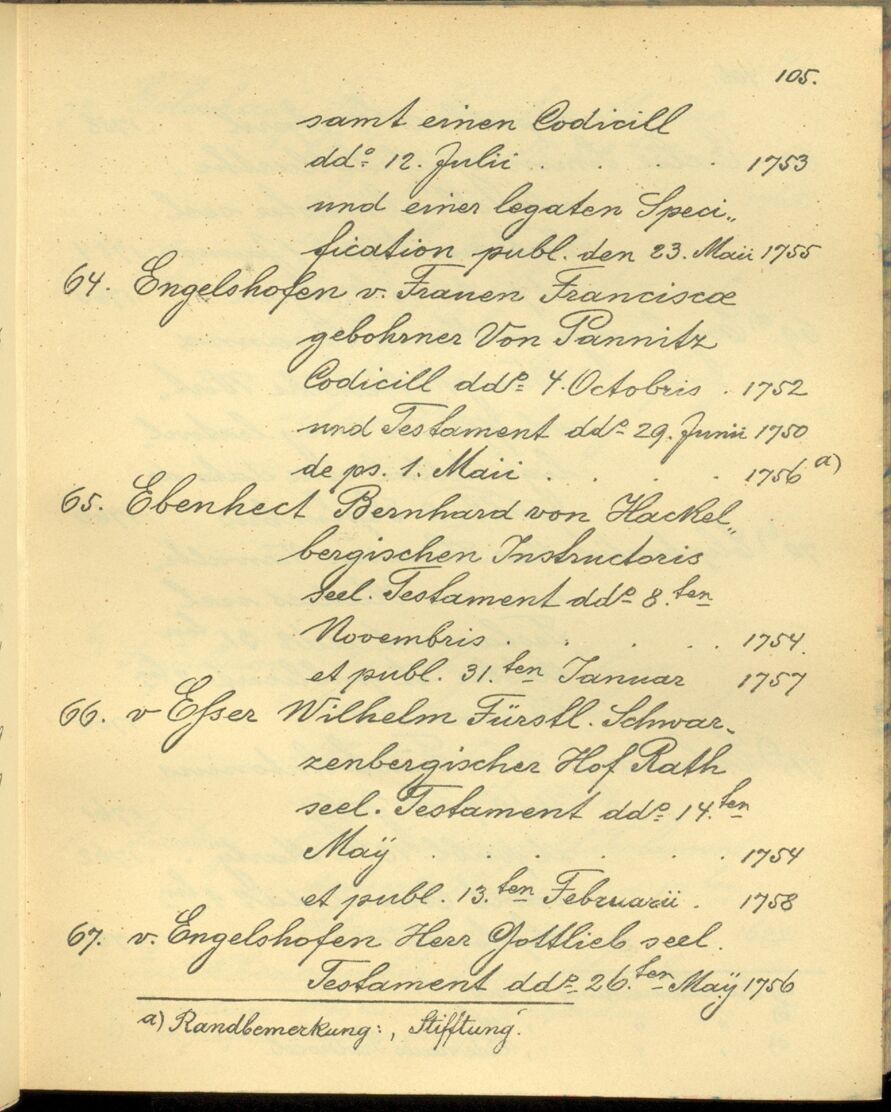 105.
samt einen Codicill
dd⁰= 12. Julii . . . . 1753
und einer legaten Speci„
fication publ. den 23. Maii 1755
64. Engelshofen v. Frauen Franciscæ
gebohrner Von Pannitz
Codicill dd⁰= 4. Octobris . 1752
und Testament dd⁰= 29. Junii 1750
de ps. 1. Maii . . . . 1756 a)
65. Ebenhect Bernhard von Hackel„
bergischen Instructoris
seel. Testament dd⁰= 8.ten
Novembris . . . . . 1754.
et publ. 31.ten Januar 1757
66. v Eſser Wilhelm Fürstl. Schwar-
zenbergischer Hof Rath
seel. Testament dd⁰= 14.ten
Maÿ . . . . . . 1754
et publ. 13.ten Februarii . 1758
67. v. Engelshofen Herr Gottlieb seel.
Testament dd⁰= 26.ten Maÿ 1756
a) Randbemerkung: ‚Stifftung‘.